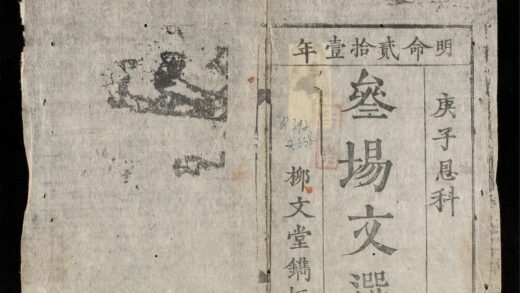 明命貳拾壹年
庚子恩科
叄場文選
柳文堂鐫